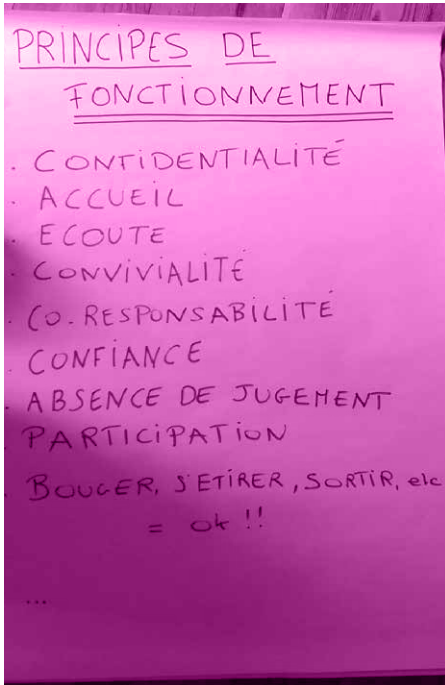 PRINCIPES DE
FONCTIONNEMENT
. CONFIDENTIALITÉ
. ACCUEIL
. ECOUTE
. CONVIVIALITÉ
. CO-RESPONSABILITÉ
. CONFIANCE
. ABSENCE DE JUGEMENT
. PARTICIPATION
. BOUGER, S'ETIRER, SORTIR, etc
= ok !!
...